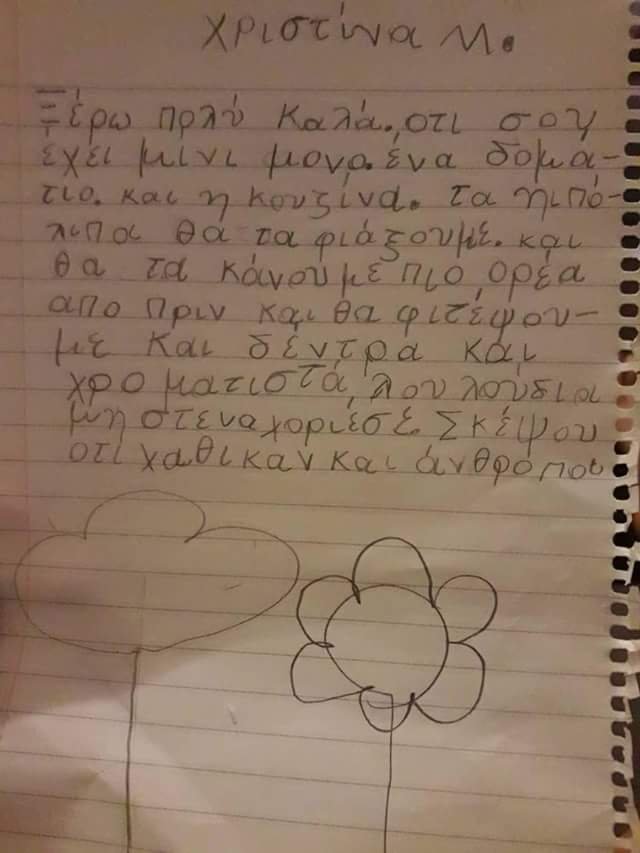 Χριστίνα Μ.
Ξέρω πολύ καλά. οτι σου
έχει μινι μονο. ένα δομα-
τιο. και η κουζίνα. τα ηπό-
λιπα θα τα φιάξουμε. και
θα τα κάνουμε πιο ορέα
απο πριν και θα φιτέψου-
με και δέντρα και
χροματιστά λουλουδια
μη στεναχοριέσε. Σκέψου
οτι χαθικαν και άνθροποι